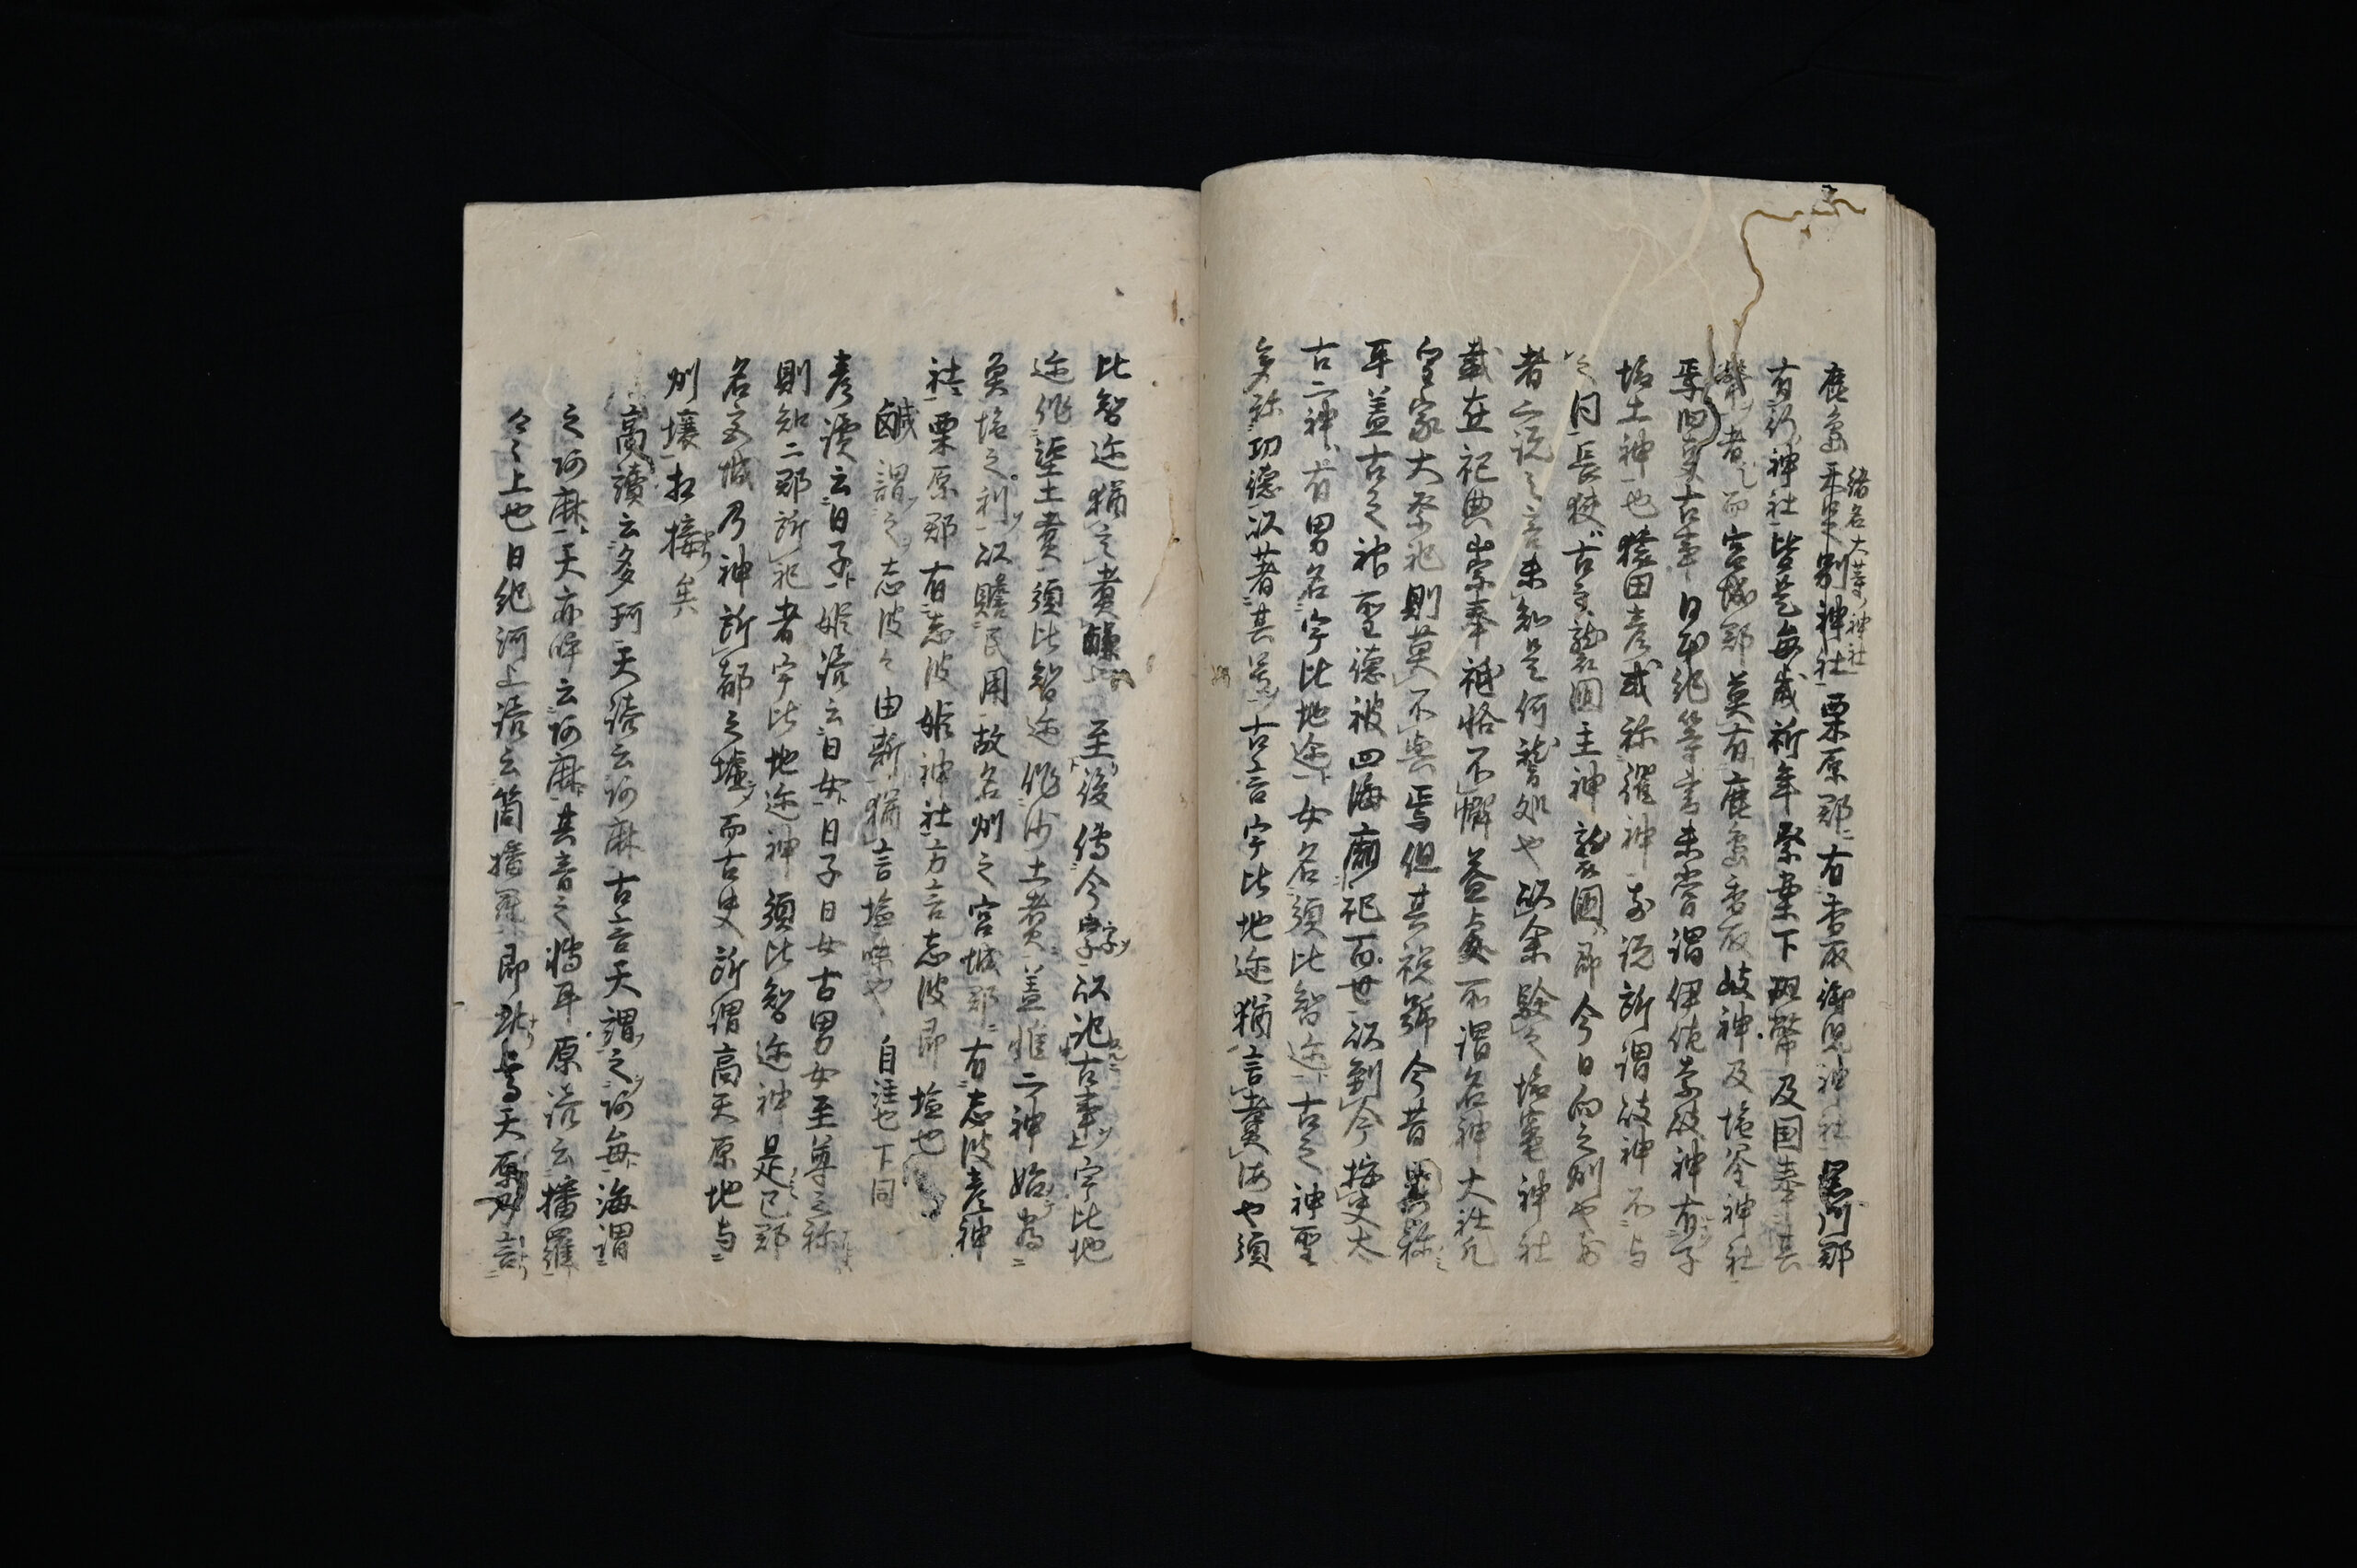 鹿島天足別神社栗原郡有香取御児神社黒川郡
緒名大等神社
有行神社皆是毎歳祈年祭案下班幣及国奉其
幣者而宮城郡莫有鹿島香取岐神及塩釜神社
焉旧史古事日本紀等書未嘗謂伊佐奈岐神有子
塩土神也猿田彦或称導神前説所謂岐神不与
之同長狭古主就国主神就国即今日向之別也前
者二説之言未知是何就処也以余験之塩竈神社
載在祀典崇奉祗恪不懈益處所謂名神大社凡
皇家大祭祀則莫不与焉但其祝号今昔異称
耳蓋古之神聖徳被四海廟祀百世以到今换史太
古二神有男名宇比地迩女名須比智迩古之神聖
多称功徳以著其号古言宇比地迩猶言煮海也須
比智迩猶之煮 至後伝今字以記古事宇比地
迩作埿土煮須比智迩作沙土煮蓋惟二神始為
煮塩之利以贍民用故名州之宮城郡有志波彦神
社栗原郡有志波姫神社方言志波即塩也
鹹謂之志波々由新猶言塩味也 自注也下同
彦読云日子姫読云日女日子日女古男女至尊之称
則知二郡所祀者宇比地迩神須比智迩神是已郡
名宮城乃神所都之墟而古史所謂高天原地与
州壌相接矣
高読云多珂天読云阿麻古言天謂之阿毎海謂
之阿麻天亦時云阿麻其音之転耳原読云播羅
今之上也日紀河上読云箇播羅即此高天原乃言